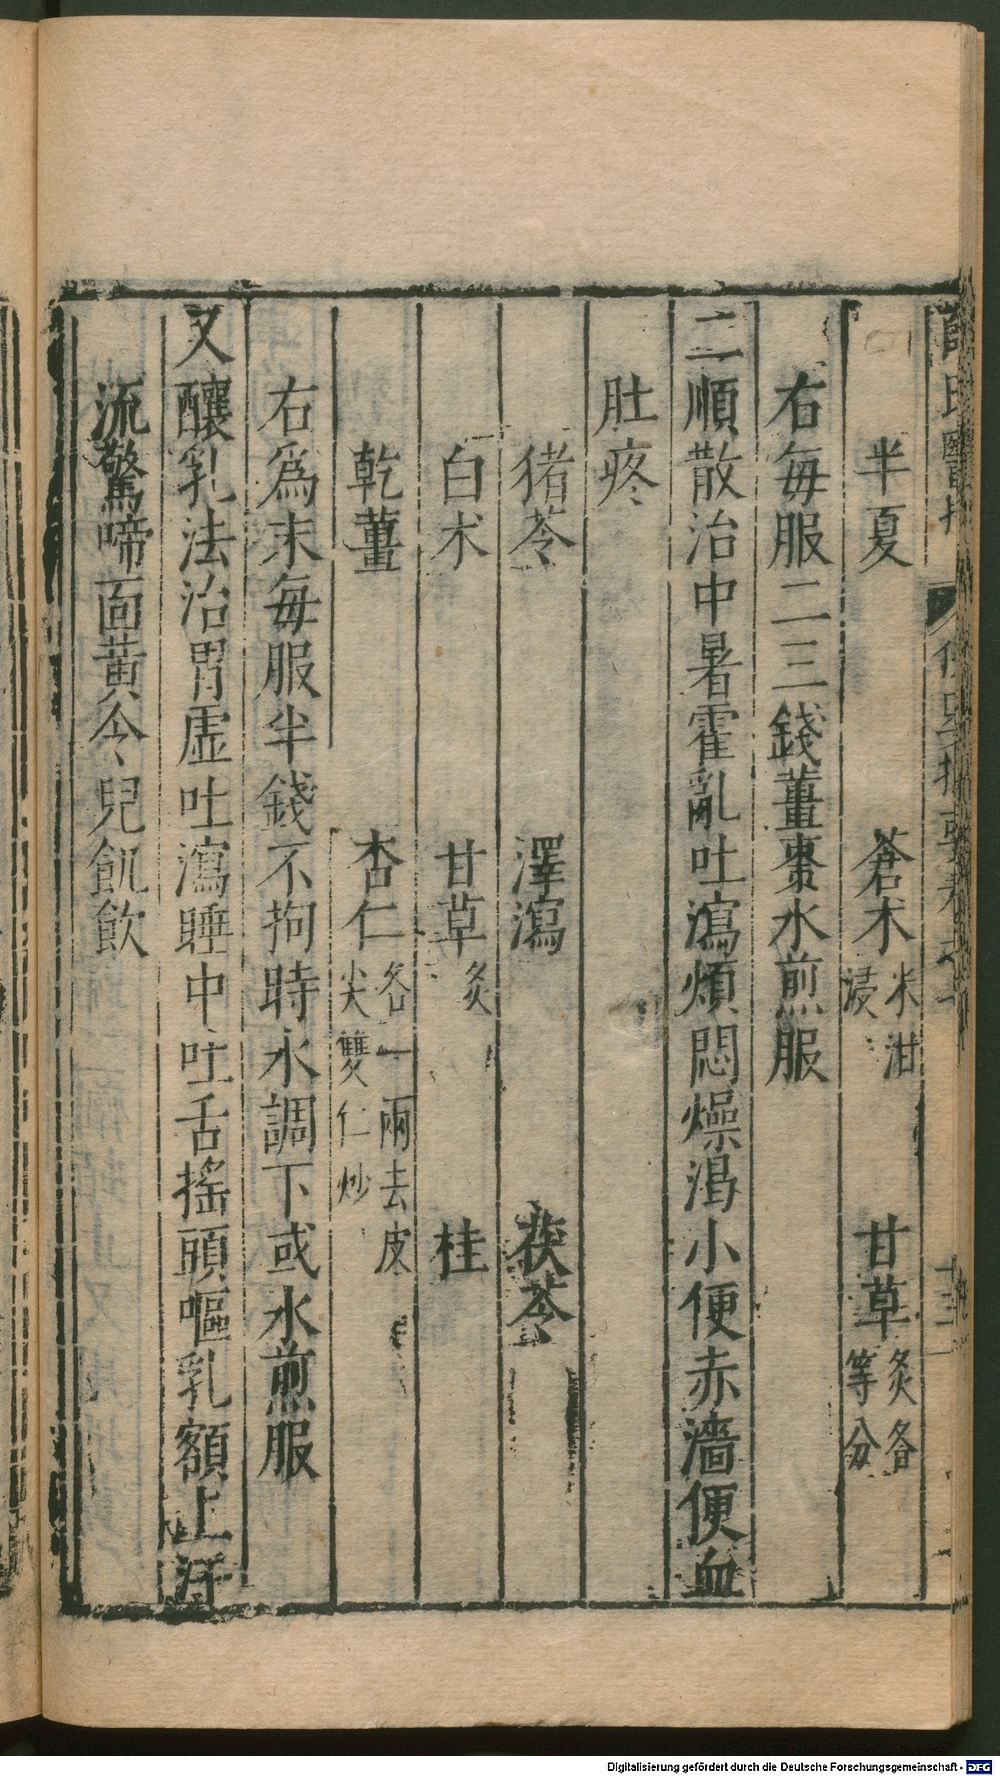 半夏 蒼术米泔浸 甘草炙各等分
右每服二三錢薑棗水煎服
二順散治中暑霍亂吐瀉煩悶燥渴小便赤濇便血
肚疼
猪苓 澤瀉 茯苓
白术 甘草炙 桂
乾薑 杏仁各一兩去皮尖雙仁炒
右爲末每服半錢不拘時水調下或水煎服
又釀乳法治胃虛吐瀉睡中吐舌搖頭嘔乳額上汗
流驚啼面黃令兒飢飲
Digitalisierung gefördert durch die Deutsche Forschungsgemeinschaft - DFG